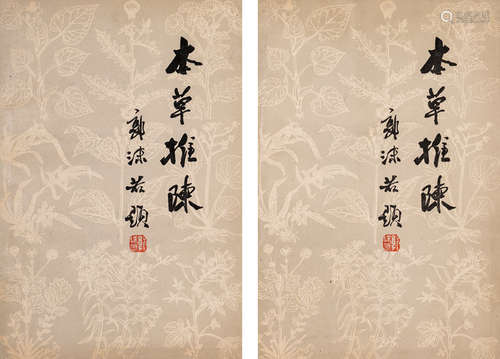 本草推陳
郭沫若題
本草推陳
郭沫若題